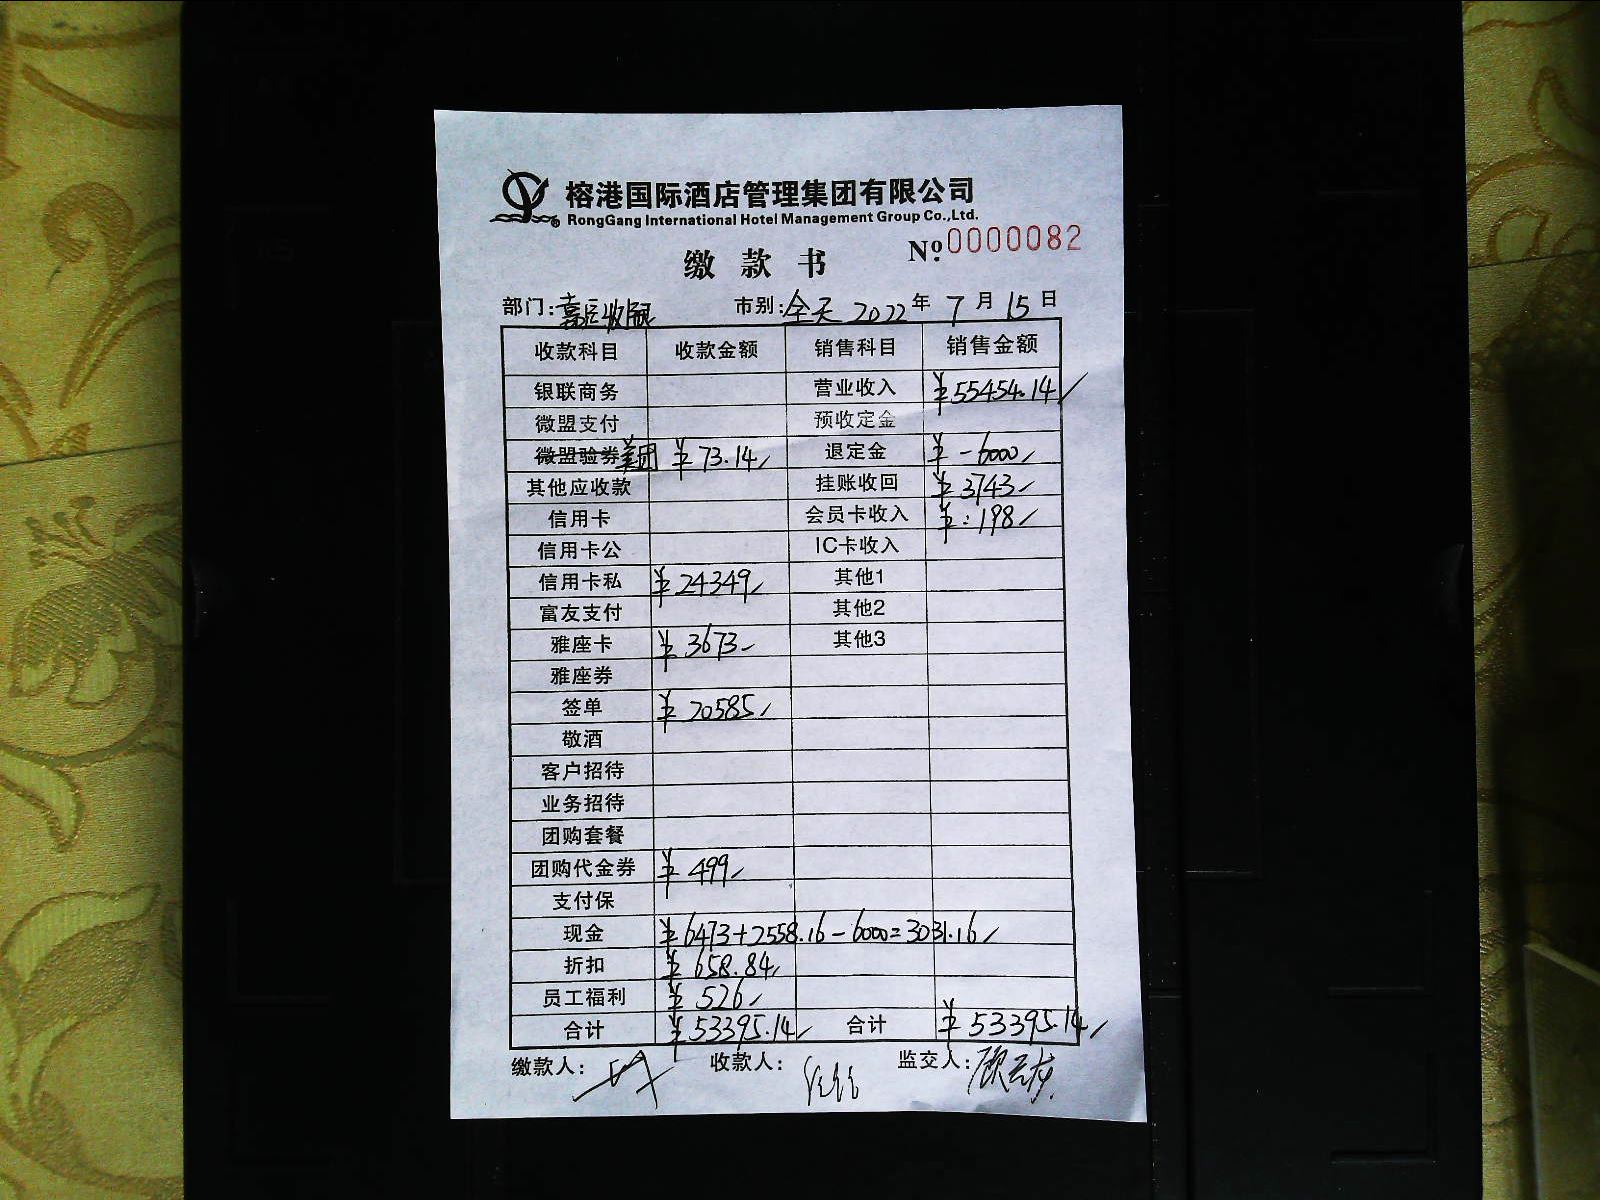 榕港国际酒店管理集团有限公司
RongGang International Hotel Management Group Co.,Ltd.
缴款书 Nº 0000082
部门: 市别:全天 2022年7月15日
收款科目 收款金额 销售科目 销售金额
银联商务 营业收入 ¥55454.14
微盟支付 预收定金
微盟验券 美团 ¥73.14 退定金 ¥-6000
其他应收款 挂账收回 ¥3743
信用卡 会员卡收入 ¥:198
信用卡公 IC卡收入
信用卡私 ¥24349 其他1
富友支付 其他2
雅座卡 ¥3673 其他3
雅座券
签单 ¥20585
敬酒
客户招待
业务招待
团购套餐
团购代金券 ¥499
支付保
现金 ¥6473+2558.16-6000=3031.16
折扣 ¥658.84
员工福利 ¥526
合计 ¥53395.14 合计 ¥53395.14
缴款人: 收款人: 监交人: